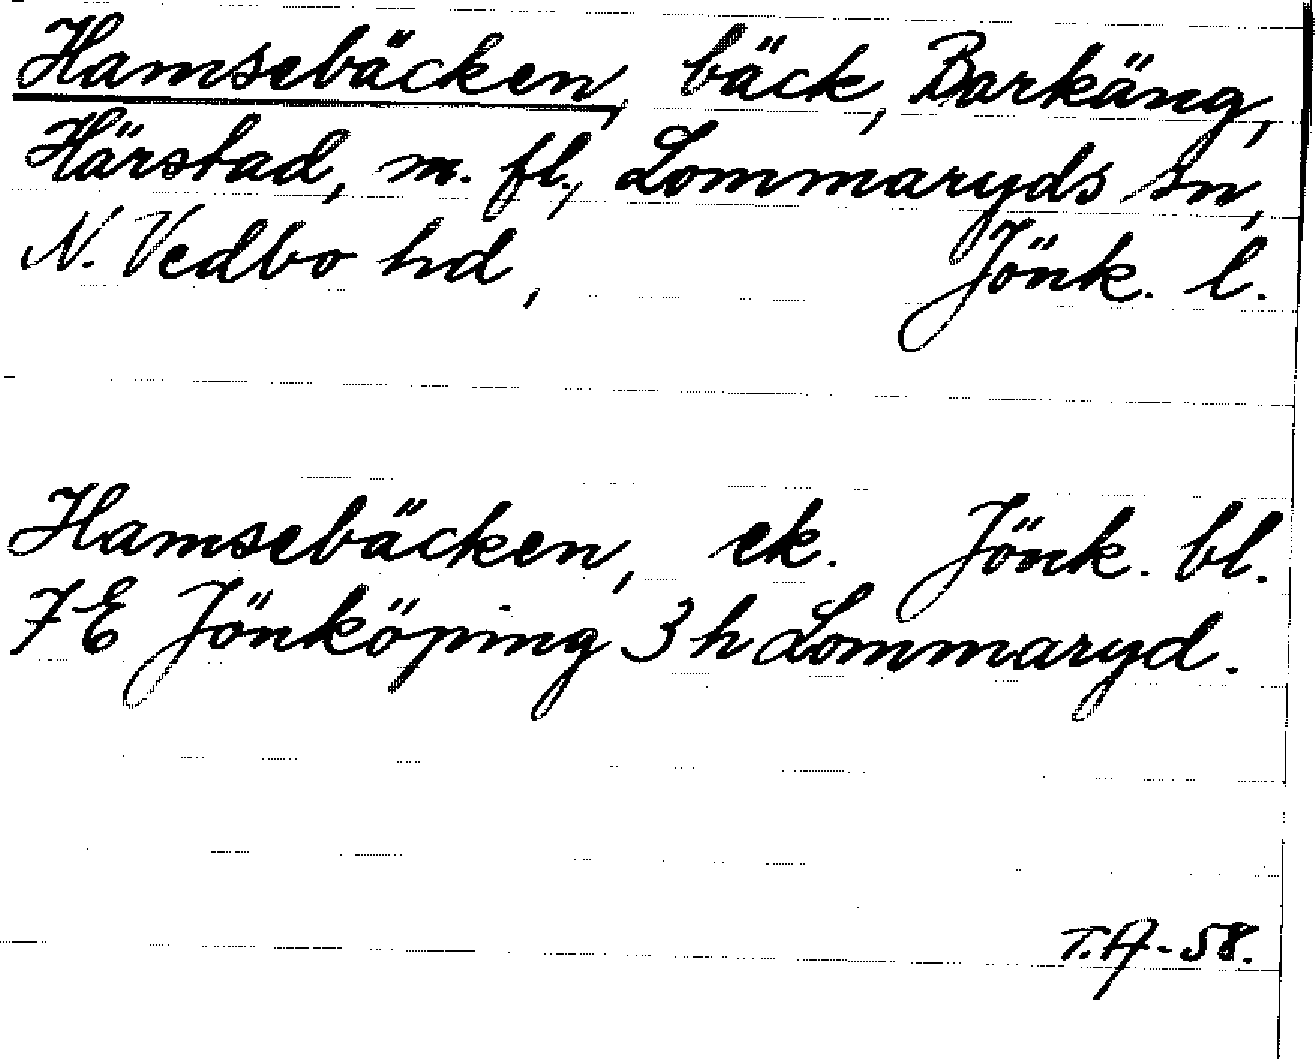 Hamsebäcken, bäck, Barkäng,
Härstad, m. fl., Lommaryds sn,
N. Vedbo hd, Jönk. l.
Hamsebäcken, ek. Jönk. bl.
7E Jönköping 3h Lommaryd.
T.A-58.